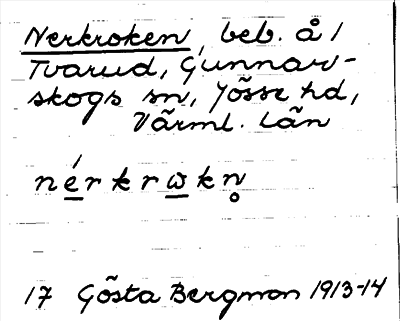 Nerkroken, beb. å 1
Tvarud, Gunnar-
skogs sn, Jösse hd,
Värml. län
nérkrωkn̥
17 Gösta Bergman 1913-14